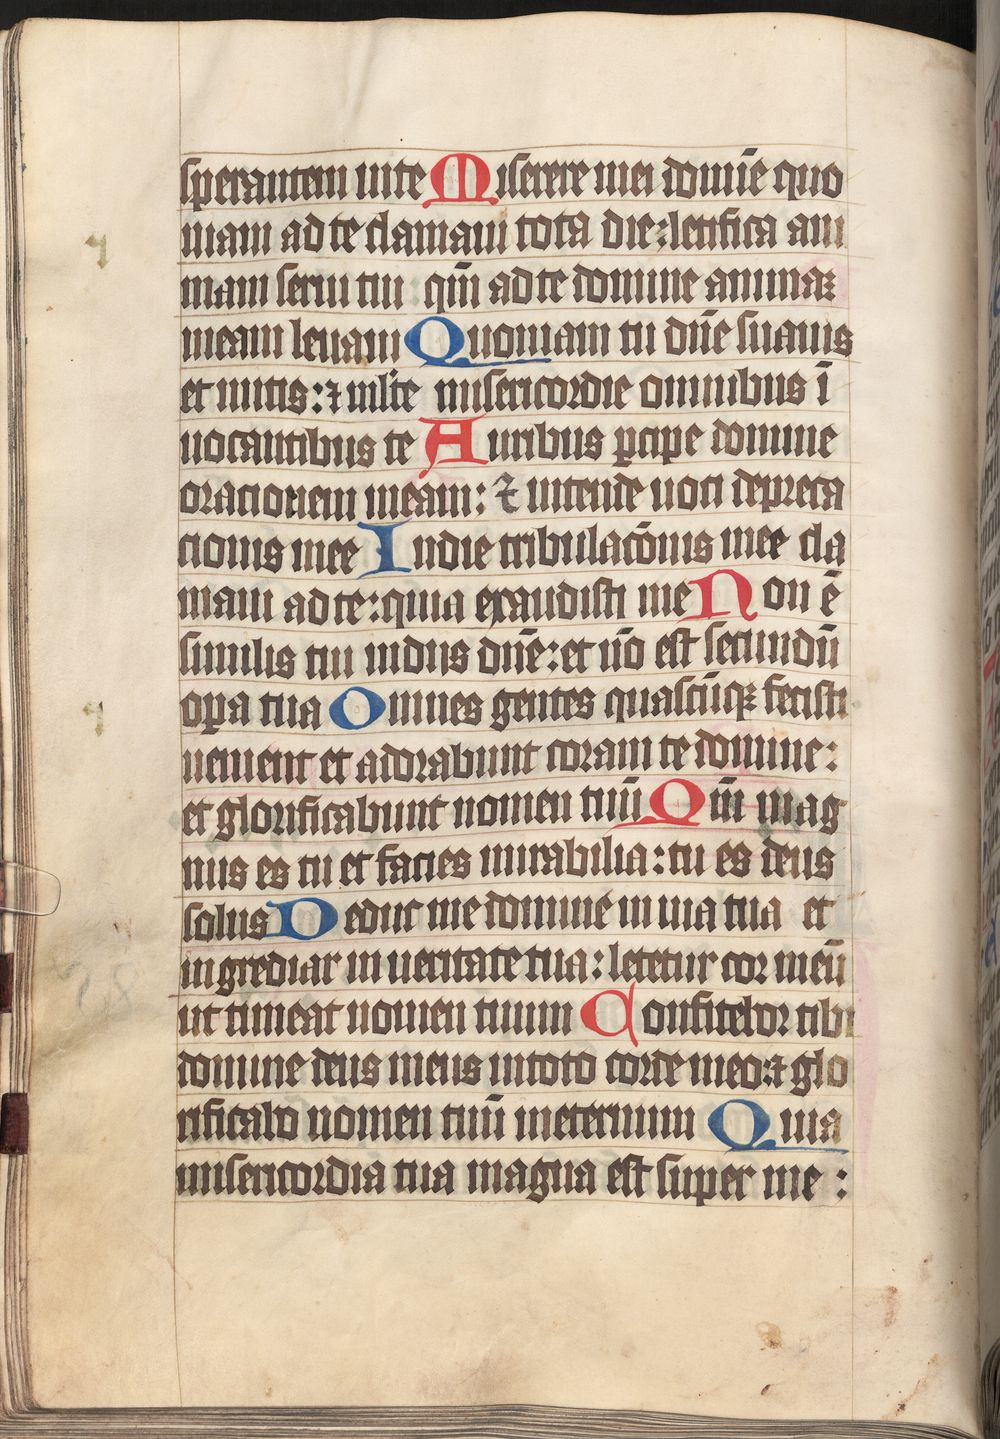 sperantem in te Miserere mei domīe quo
niam ad te clamaui tota die: letifica ani
mam serui tui : qm̄ ad te domine animaꝫ
meam leuaui Quoniam tu dn̄e suauis
et mitis: ⁊ ml̄te misericordie omnibus ī
uocantibus te Auribus ꝑcipe domine
orationem meam: ⁊ intende uoci depreca
tionis mee In die tribulac̄onis mee cla
maui ad te: quia exaudisti me Non ē
similis tui in diis dn̄e: et nō est secundū
oꝑa tua Omnes gentes quascūqꝫ fecisti
uenient et adorabunt coram te domine:
et glorificabunt nomen tuū Qm̄ mag
nus es tu et facies mirabilia: tu es deus
solus Deduc me domine in uia tua et
ingrediar in ueritate tua: letetur cor meū
ut timeat nomen tuum Confitebor tibi
domine deus meus in toto corde meo: ⁊ glo
rificabo nomen tuū in eternum Quia
misericordia tua magna est super me :